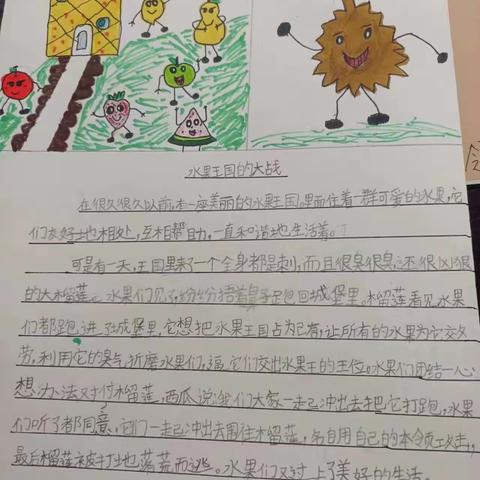 水果王国的大战
在很久很久以前,有一座美丽的水果王国。里面住着一群可爱的水果,它
们友好地相处,互相帮助,一直和谐地生活着。
可是有一天,王国里来了一个全身都是刺,而且很臭很臭,还很凶狠
的大榴莲。水果们见了,纷纷捂着鼻子跑回城堡里。榴莲看见水果
们都跑进了城堡里,它想把水果王国占为己有,让所有的水果为它效
劳,利用它的臭气,折磨水果们,逼它们交出水果王的王位。水果们团结一心
想办法对付榴莲,西瓜说:我们大家一起冲出去把它打跑,水果
们听了都同意,它们一起冲出去围住榴莲,各自用自己的本领攻击,
最后榴莲被打地落荒而逃。水果们又过上了美好的生活。